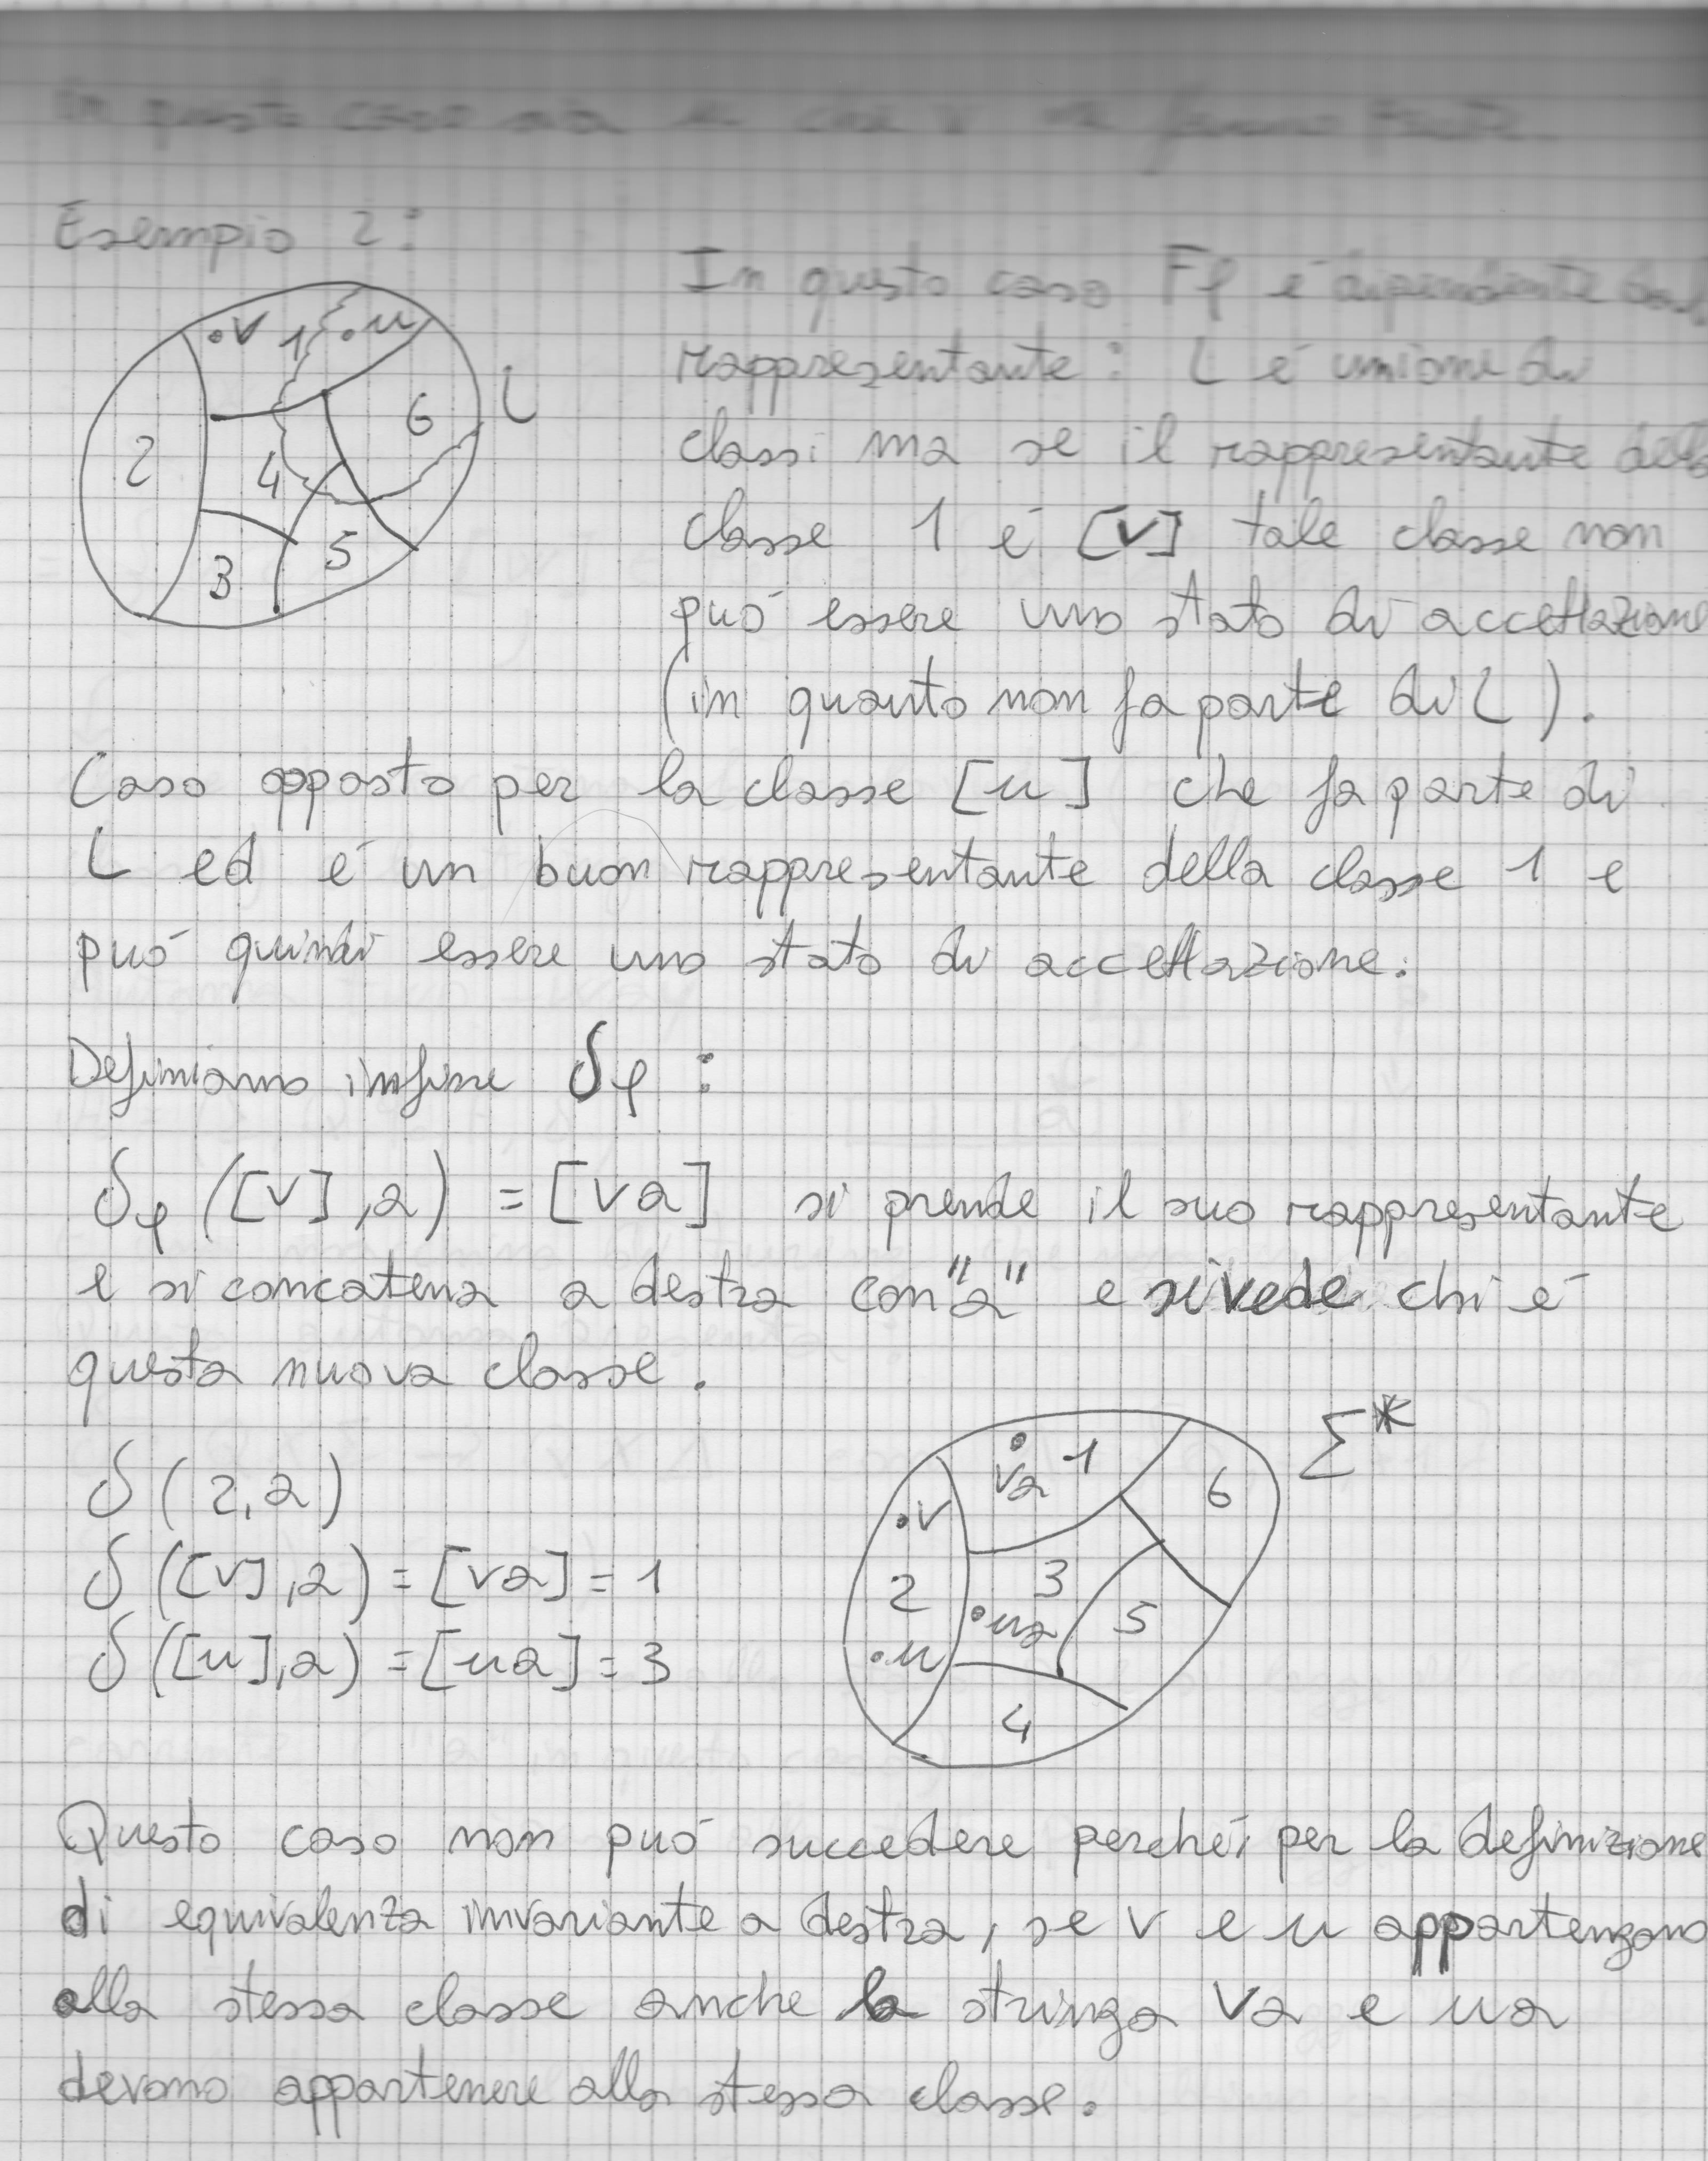 In questo caso sia u che v ne fanno parte
Esempio 2:
.v 1 .u
2
4
6
3
5
L
In questo caso Fρ é dipendente dal
rappresentante: L é unione di
classi ma se il rappresentante della
classe 1 é [v] tale classe non
puó essere uno stato di accettazione
(in quanto non fa parte di L).
Caso opposto per la classe [u] che fa parte di
L ed é un buon rappresentante della classe 1 e
puó quindi essere uno stato di accettazione.
Definiamo infine δρ:
δρ([v],a) = [va] si prende il suo rappresentante
e si concatena a destra con "a" e si vede chi é
questa nuova classe.
δ(2,a)
δ([v],a) = [va] = 1
δ([u],a) = [ua] = 3
Σ*
va 1
6
.v
2
3
.ua
5
.u
4
Questo caso non puó succedere perché, per la definizione
di equivalenza invariante a destra, se v e u appartengono
alla stessa classe anche la stringa va e ua
devono appartenere alla stessa classe.